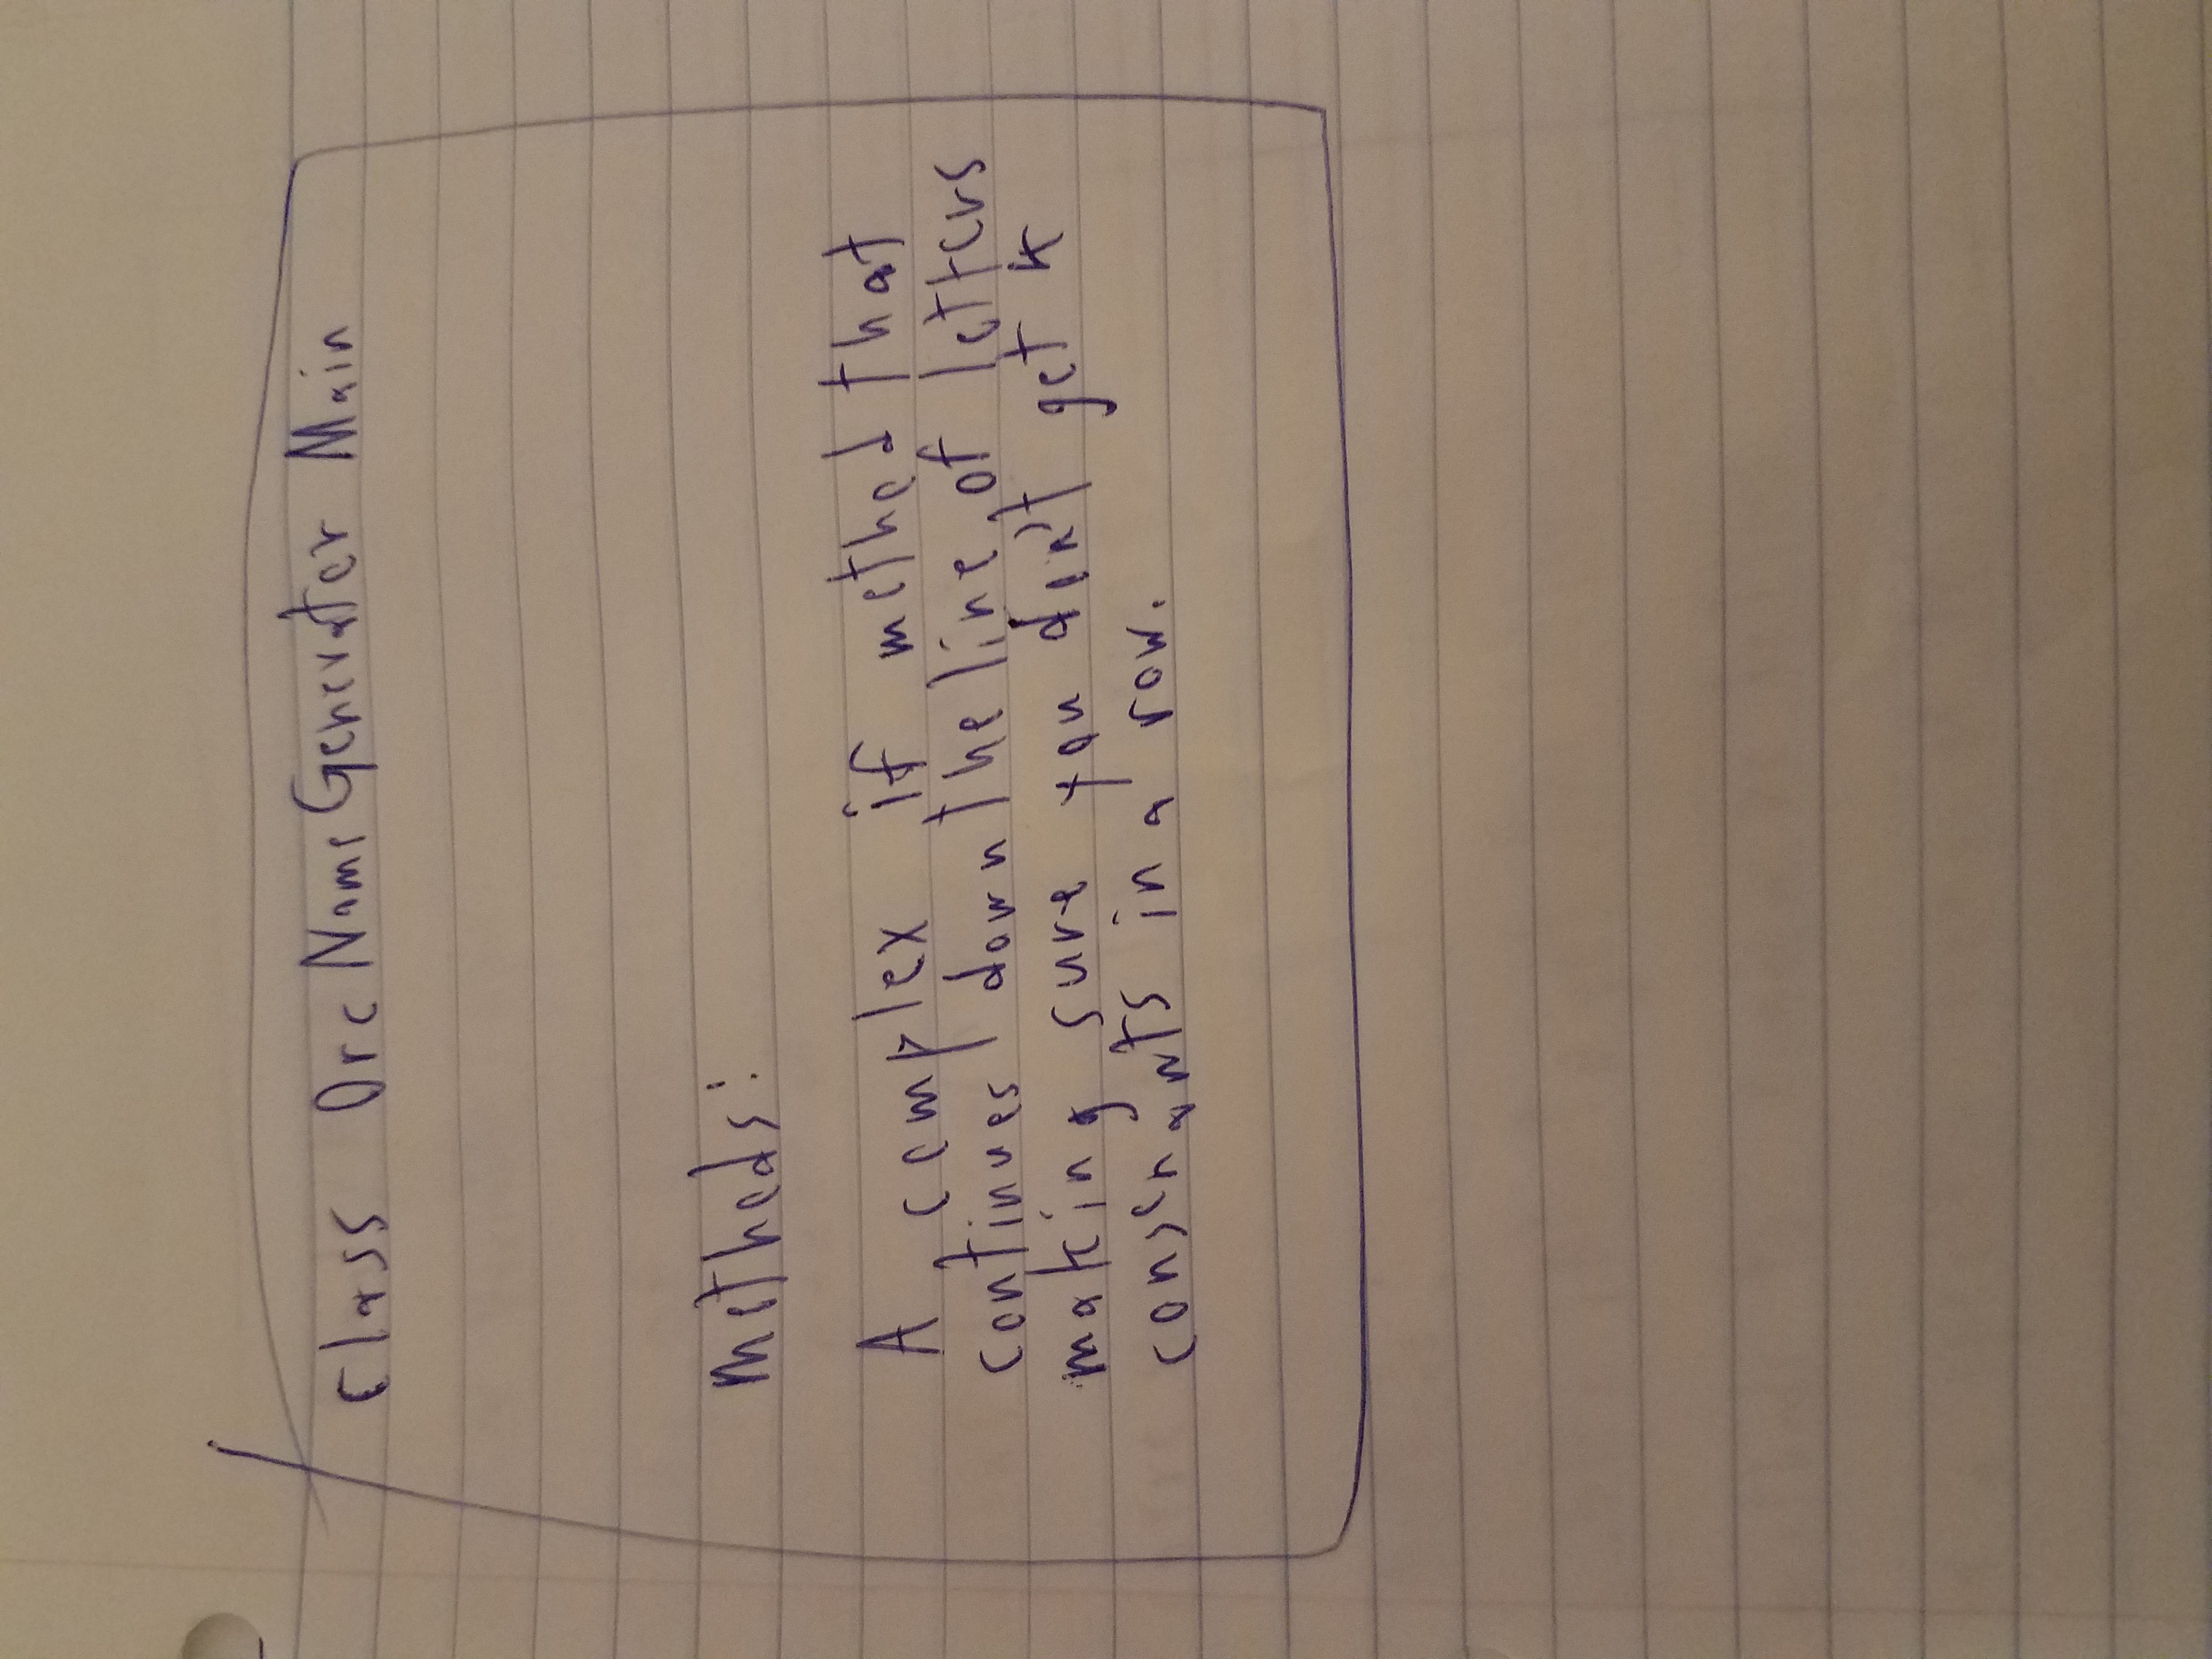 class OrcNameGenerator Main
methods:
A complex if method that
continues down the line of letters
making sure you don't get 4
consonants in a row.